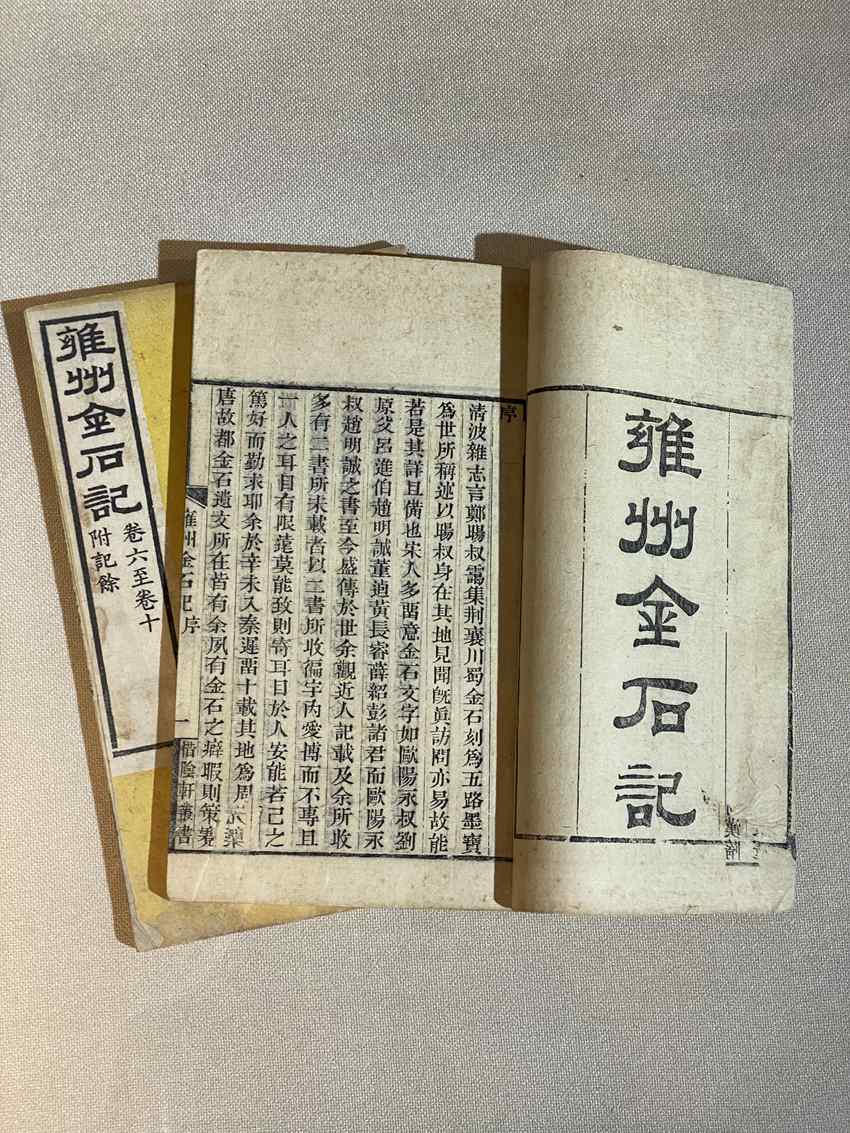 雍州金石記
序
清波雜志言鄭暘叔靄集荆襄川蜀金石刻爲五路墨寶
爲世所稱述以暘叔身在其地見聞旣眞訪問亦易故能
若是其詳且備也宋人多畱意金石文字如歐陽永叔劉
原父呂進伯趙明誠董逌黃長睿薛紹彭諸君而歐陽永
叔趙明誠之書至今盛傳於世余觀近人記載及余所收
多有二書所未載者以二書所收徧宇內愛博而不專且
一人之耳目有限逺莫能致則寄耳目於人安能若己之
篤好而勤求耶余於辛未入秦遲畱十載其地爲周
唐故都金石遺文所在皆有余夙有金石之癖暇則策蹇
雍州金石記序 一 惜陰軒叢書
雍州金石記
卷六至卷十
附記餘